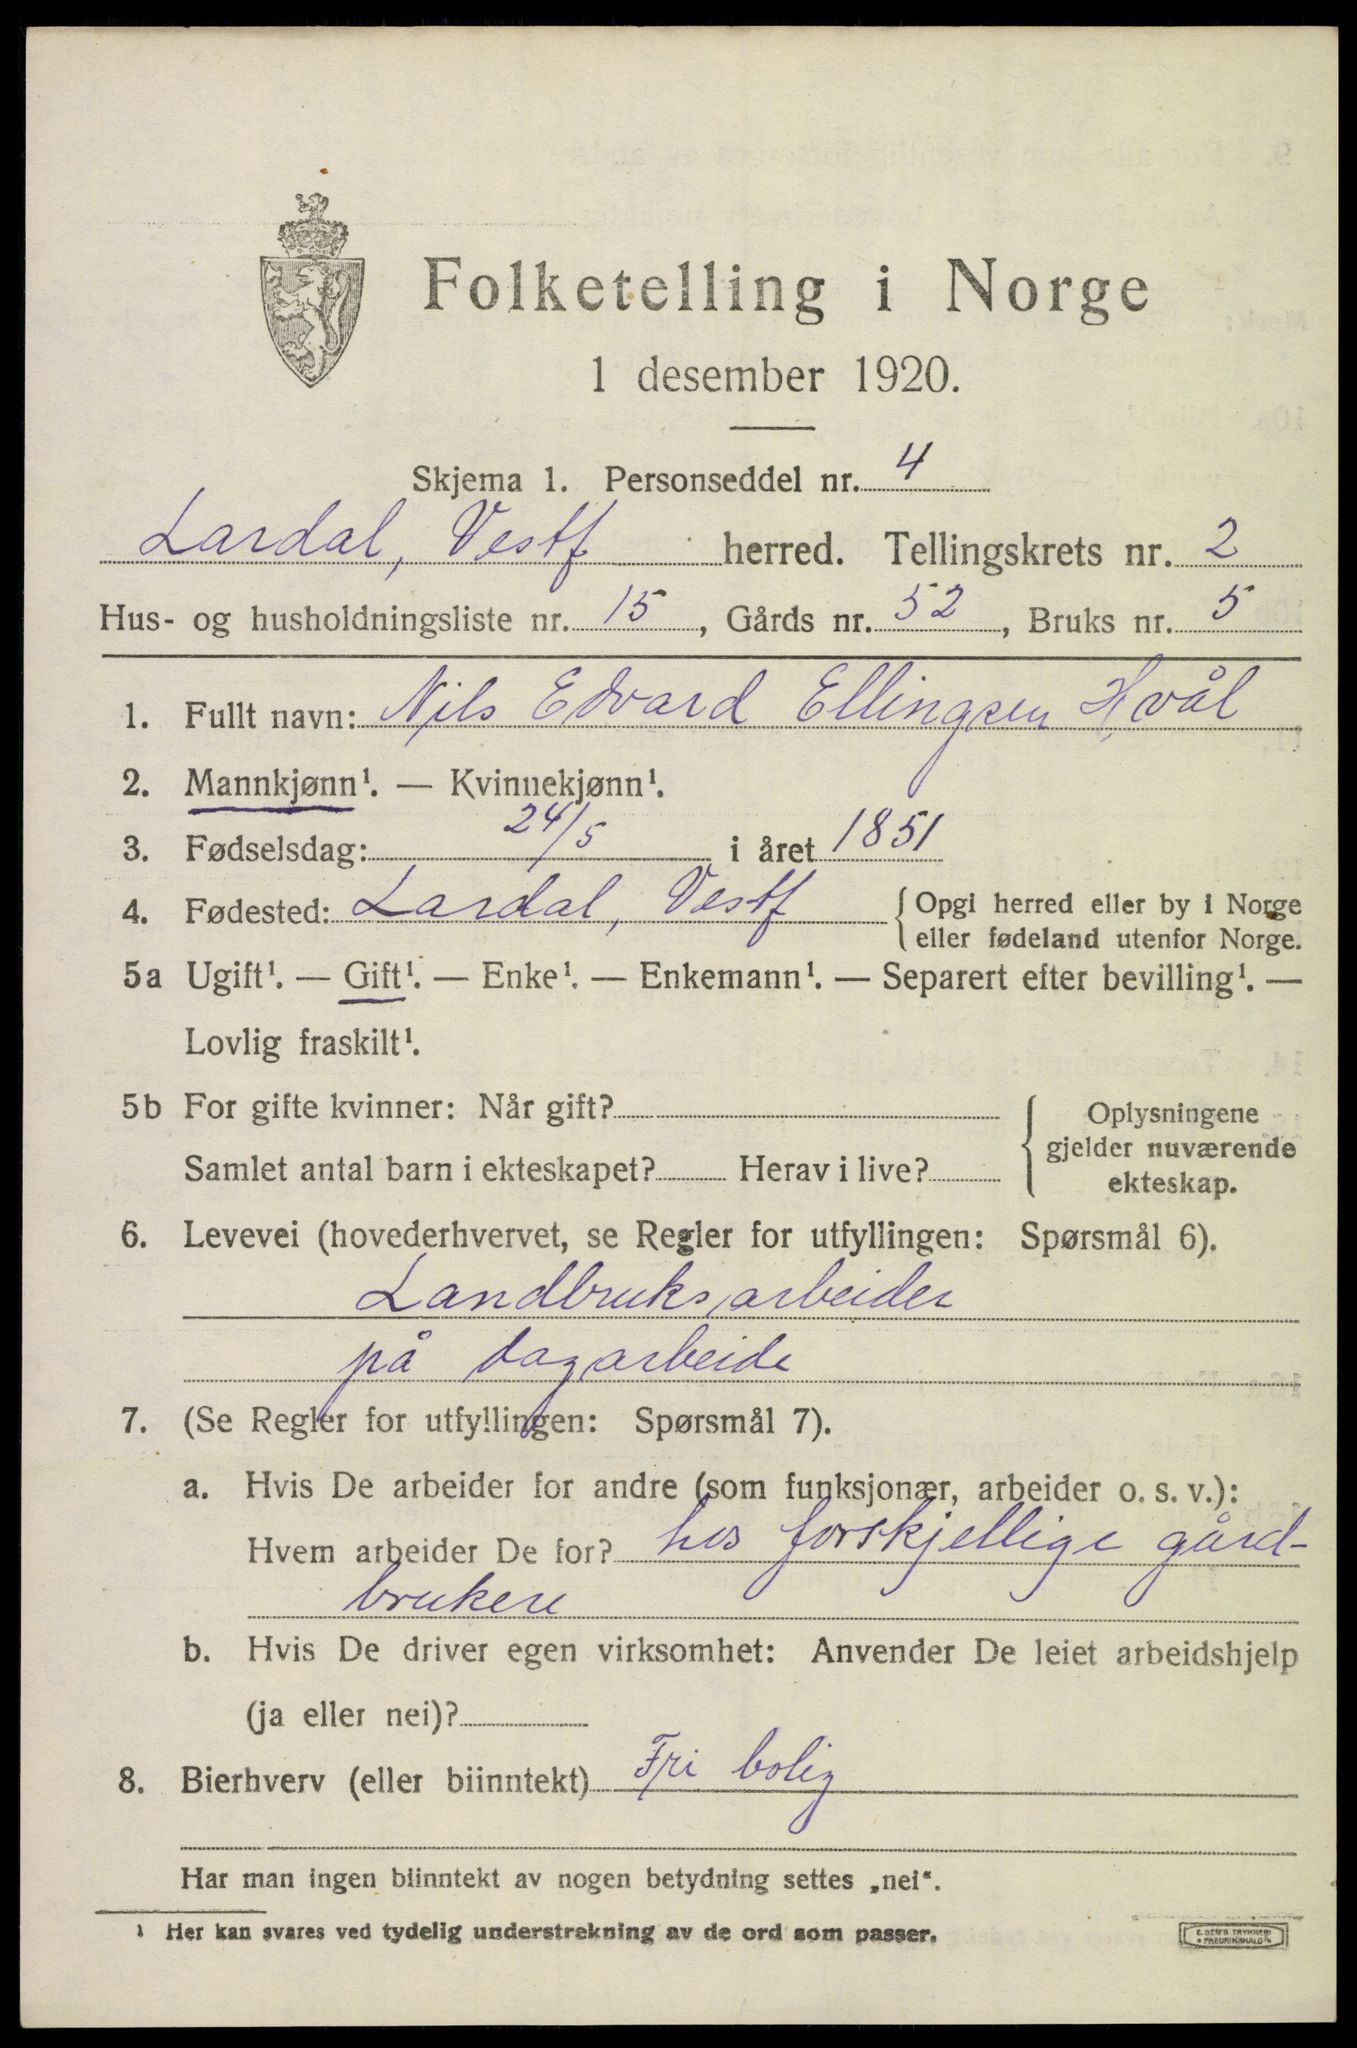 Folketelling i Norge
1 desember 1920.
Skjema 1. Personseddel nr. 4
Lardal, Vestf herred. Tellingskrets nr. 2
Hus- og husholdningsliste nr. 15, Gårds nr. 52, Bruks nr. 5
1. Fullt navn: Nils Edvard Ellingsen Hvål
2. Mannkjønn¹. — Kvinnekjønn¹.
3. Fødselsdag: 24/5 i året 1851
4. Fødested: Lardal, Vestf { Opgi herred eller by i Norge
eller fødeland utenfor Norge.
5a Ugift¹. — Gift¹. — Enke¹. — Enkemann¹. — Separert efter bevilling¹. —
Lovlig fraskilt¹.
5b For gifte kvinner: Når gift?
Samlet antal barn i ekteskapet? Herav i live?
Oplysningene
gjelder nuværende
ekteskap.
6. Levevei (hovederhvervet, se Regler for utfyllingen: Spørsmål 6).
Landbruksarbeider
på dagarbeide
7. (Se Regler for utfyllingen: Spørsmål 7).
a. Hvis De arbeider for andre (som funksjonær, arbeider o. s. v.):
Hvem arbeider De for? hos forskjellige gård-
brukere
b. Hvis De driver egen virksomhet: Anvender De leiet arbeidshjelp
(ja eller nei)?
8. Bierhverv (eller biinntekt) Fri bolig
Har man ingen biinntekt av nogen betydning settes „nei“.
¹ Her kan svares ved tydelig understrekning av de ord som passer.
E. SEM'S TRYKKERI
FREDRIKSHALD